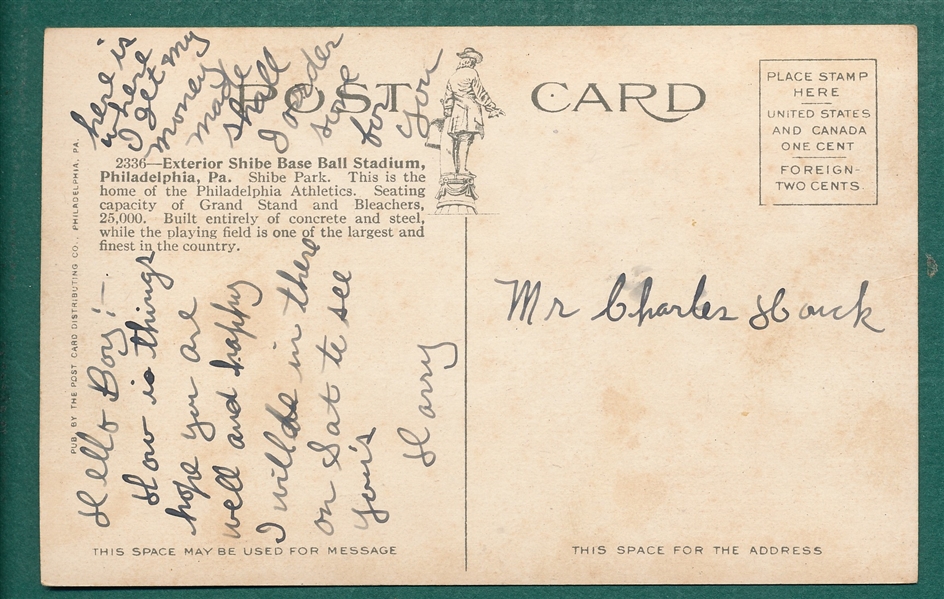 POST CARD
PLACE STAMP
HERE
UNITED STATES
AND CANADA
ONE CENT
FOREIGN-
TWO CENTS.
2336—Exterior Shibe Base Ball Stadium,
Philadelphia, Pa. Shibe Park. This is the
home of the Philadelphia Athletics. Seating
capacity of Grand Stand and Bleachers,
25,000. Built entirely of concrete and steel,
while the playing field is one of the largest and
finest in the country.
PUB. BY THE POST CARD DISTRIBUTING CO., PHILADELPHIA, PA.
Hello Boy:—
How is things
hope you are
well and happy
I will be in there
on Sat to see
you's
Harry
here is
where
I get my
money
made
shall
I order
some
for
you
Mr Charles Houck
THIS SPACE MAY BE USED FOR MESSAGE
THIS SPACE FOR THE ADDRESS